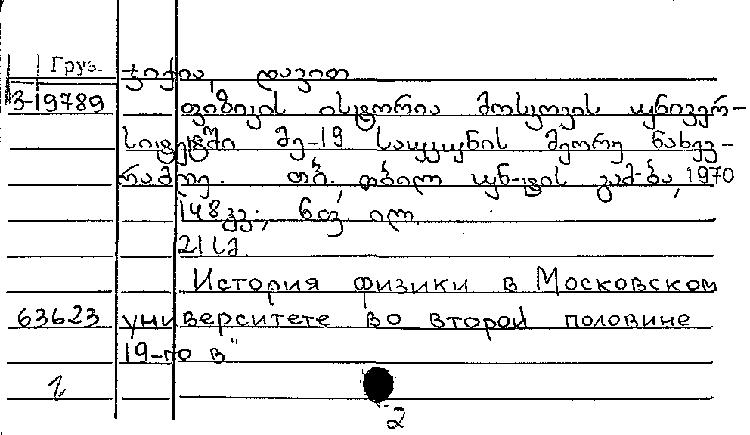 Груз. ჯიქია, დავით
3-19789 ფიზიკის ისტორია მოსკოვის უნივერ-
სიტეტში მე-19 საუკუნის მეორე ნახევ-
რამდე. თბ., თბილ უნ-ტის გამ-ბა, 1970
148 გვ; ილ.
21 სმ.
История физики в Московском
63623 университете во второй половине
19-го в"
2